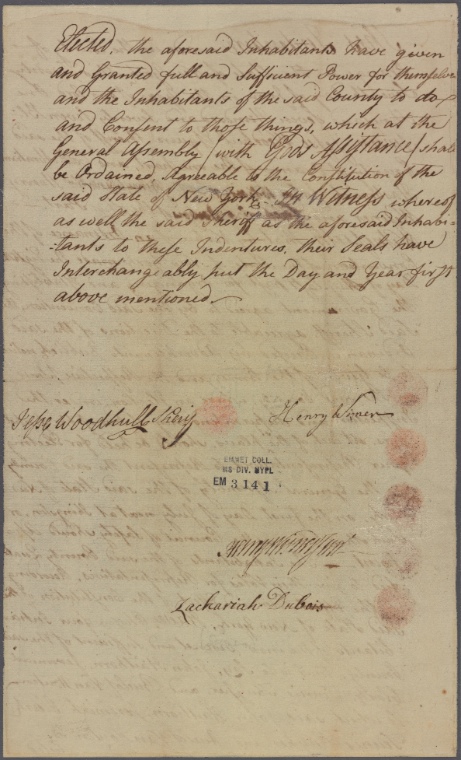 Elected, the aforesaid Inhabitants have given
and Granted full and Sufficient Power for themselve
and the Inhabitants of the said County to do
and Consent to those things, which at the
General Assembly (with Gods Assistance) shall
be Ordained, Agreeable to the Constitution of the
said State of New York. In Witness whereof
as well the said Sheriff as the aforesaid Inhabi-
-tants to these Indentures, their Seals have
Interchangably put the Day and Year first
above mentioned.
Henry Wisner
Jesse Woodhull Sheriff
EMMET COLL.
MS DIV. NYPL
EM 3141
Zachariah Dubois